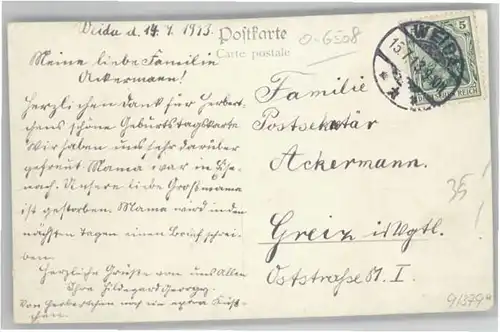 Weida d. 14. 7. 1913.
Postkarte
Carte postale
O-6508
5
WEIDA
15.7.13
DEUTSCHES REICH
Meine liebe Familie
Ackermann!
Herzlichen Dank für Herbert-
chens schöne Geburtstagskarte
Wir haben uns sehr darüber
gefreut Mama war in Eise-
nach. Unsere liebe Großmama
ist gestorben. Mama wird in den
nächsten Tagen einen Brief schrei-
ben.
Herzliche Grüße von uns Allen
Ihre Hildegard
Von Herbertchen noch ein extra
chen.
Familie
Postsekretär
Ackermann.
Greiz i. Vgtl.
Oststraße 81. I.
35
91379